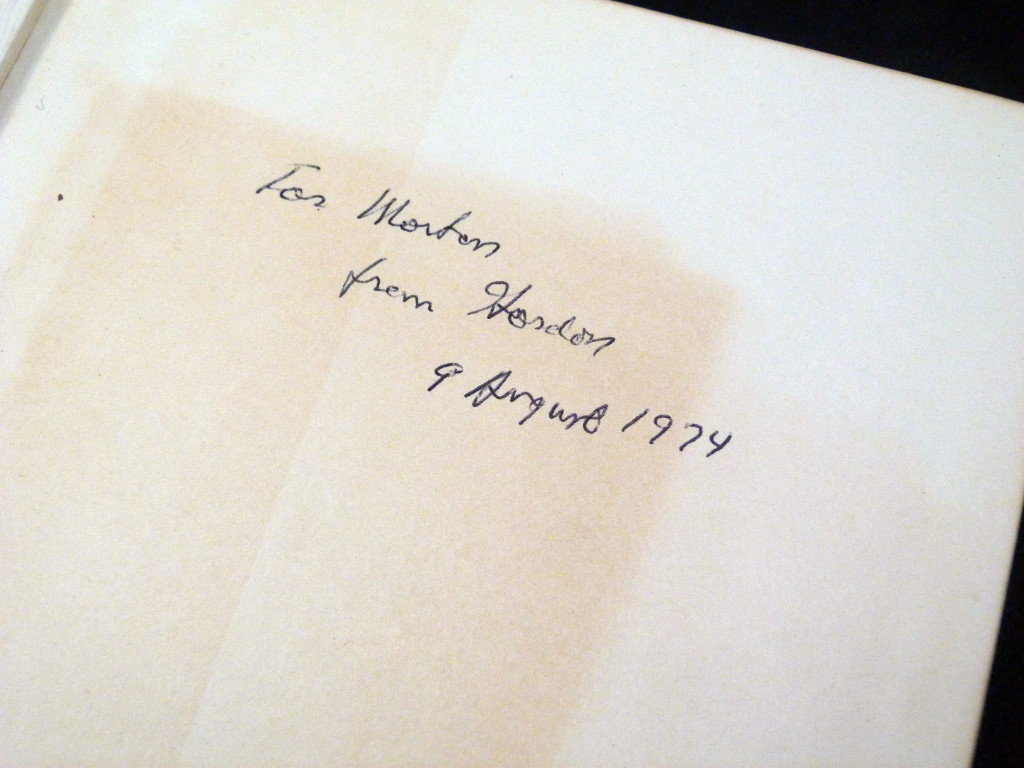 For Morton
from Gordon
9 August 1974